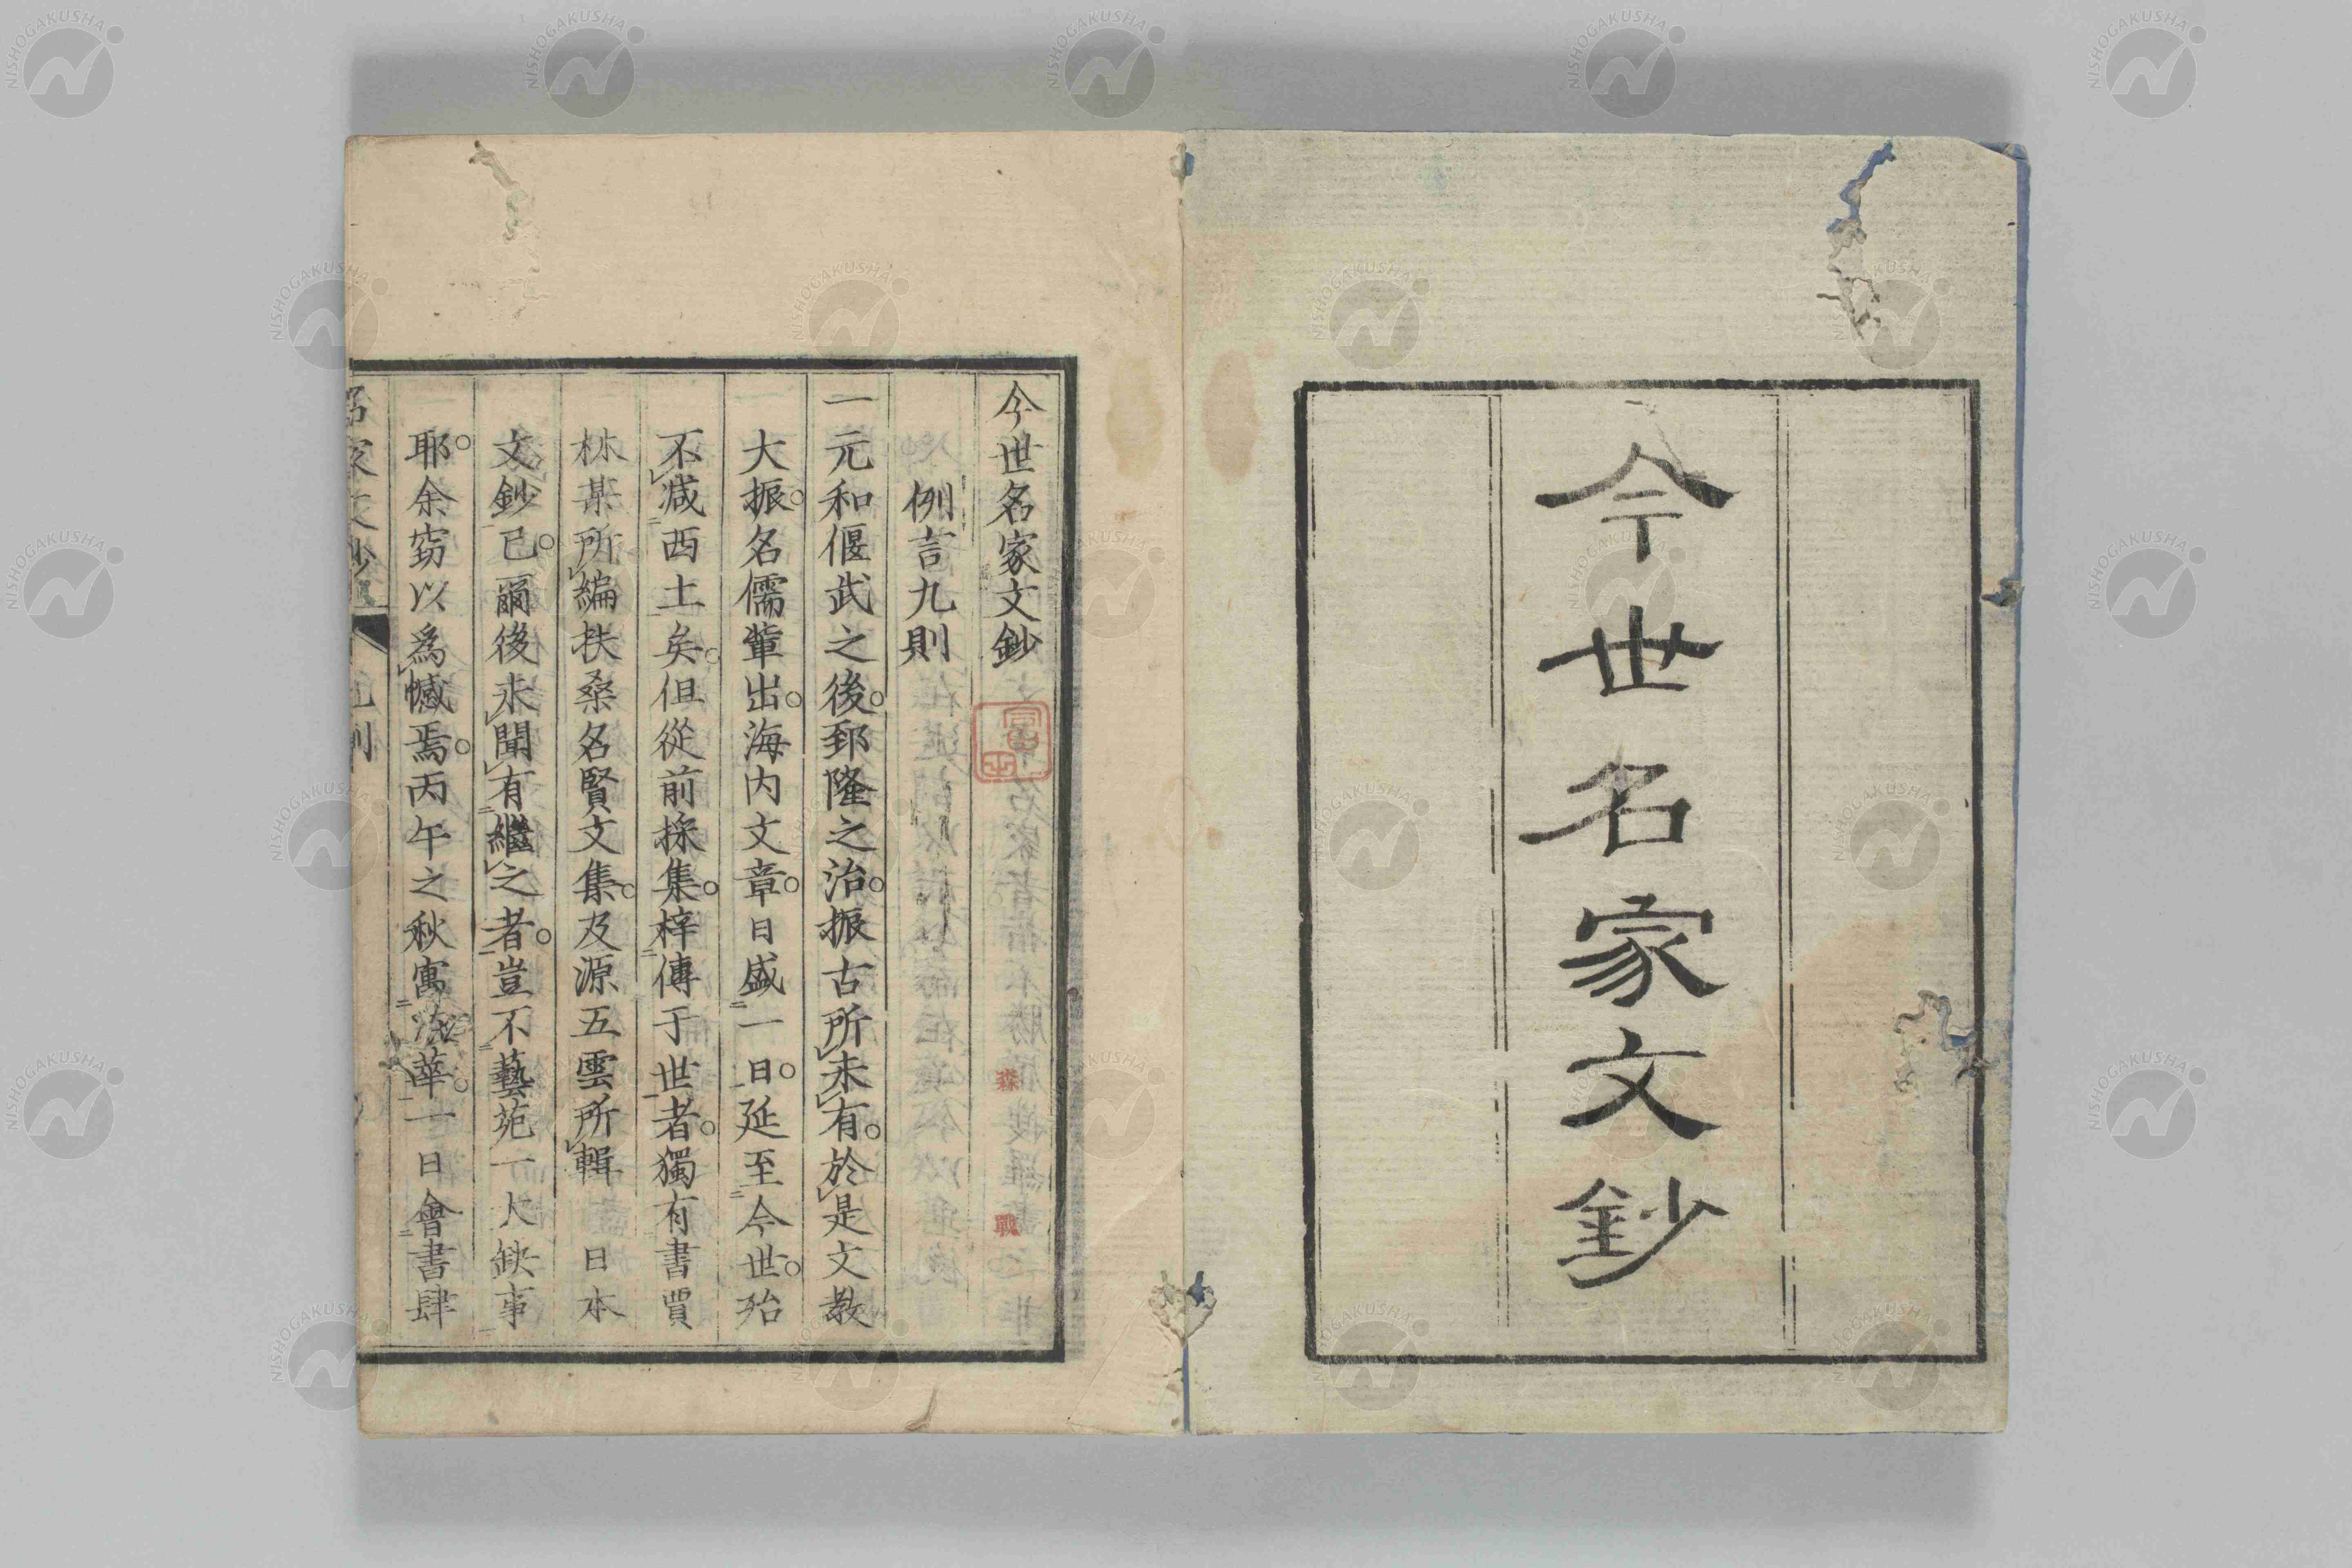 今世名家文鈔
今世名家文鈔
例言九則
一元和偃武之後。郅隆之治。振古所未有。於是文教
大振。名儒輩出。海内文章。日盛一日。延至今世。殆
不減西土矣。但從前採集。梓傳于世者。獨有書賈
林某所編扶桑名賢文集。及源五雲所輯日本
文鈔已。爾後未聞有繼之者。豈不藝苑一大缺事
耶。余窃以爲憾焉。丙午之秋寓浪華。一日會書肆
名家文鈔
NISHOGAKUSHA